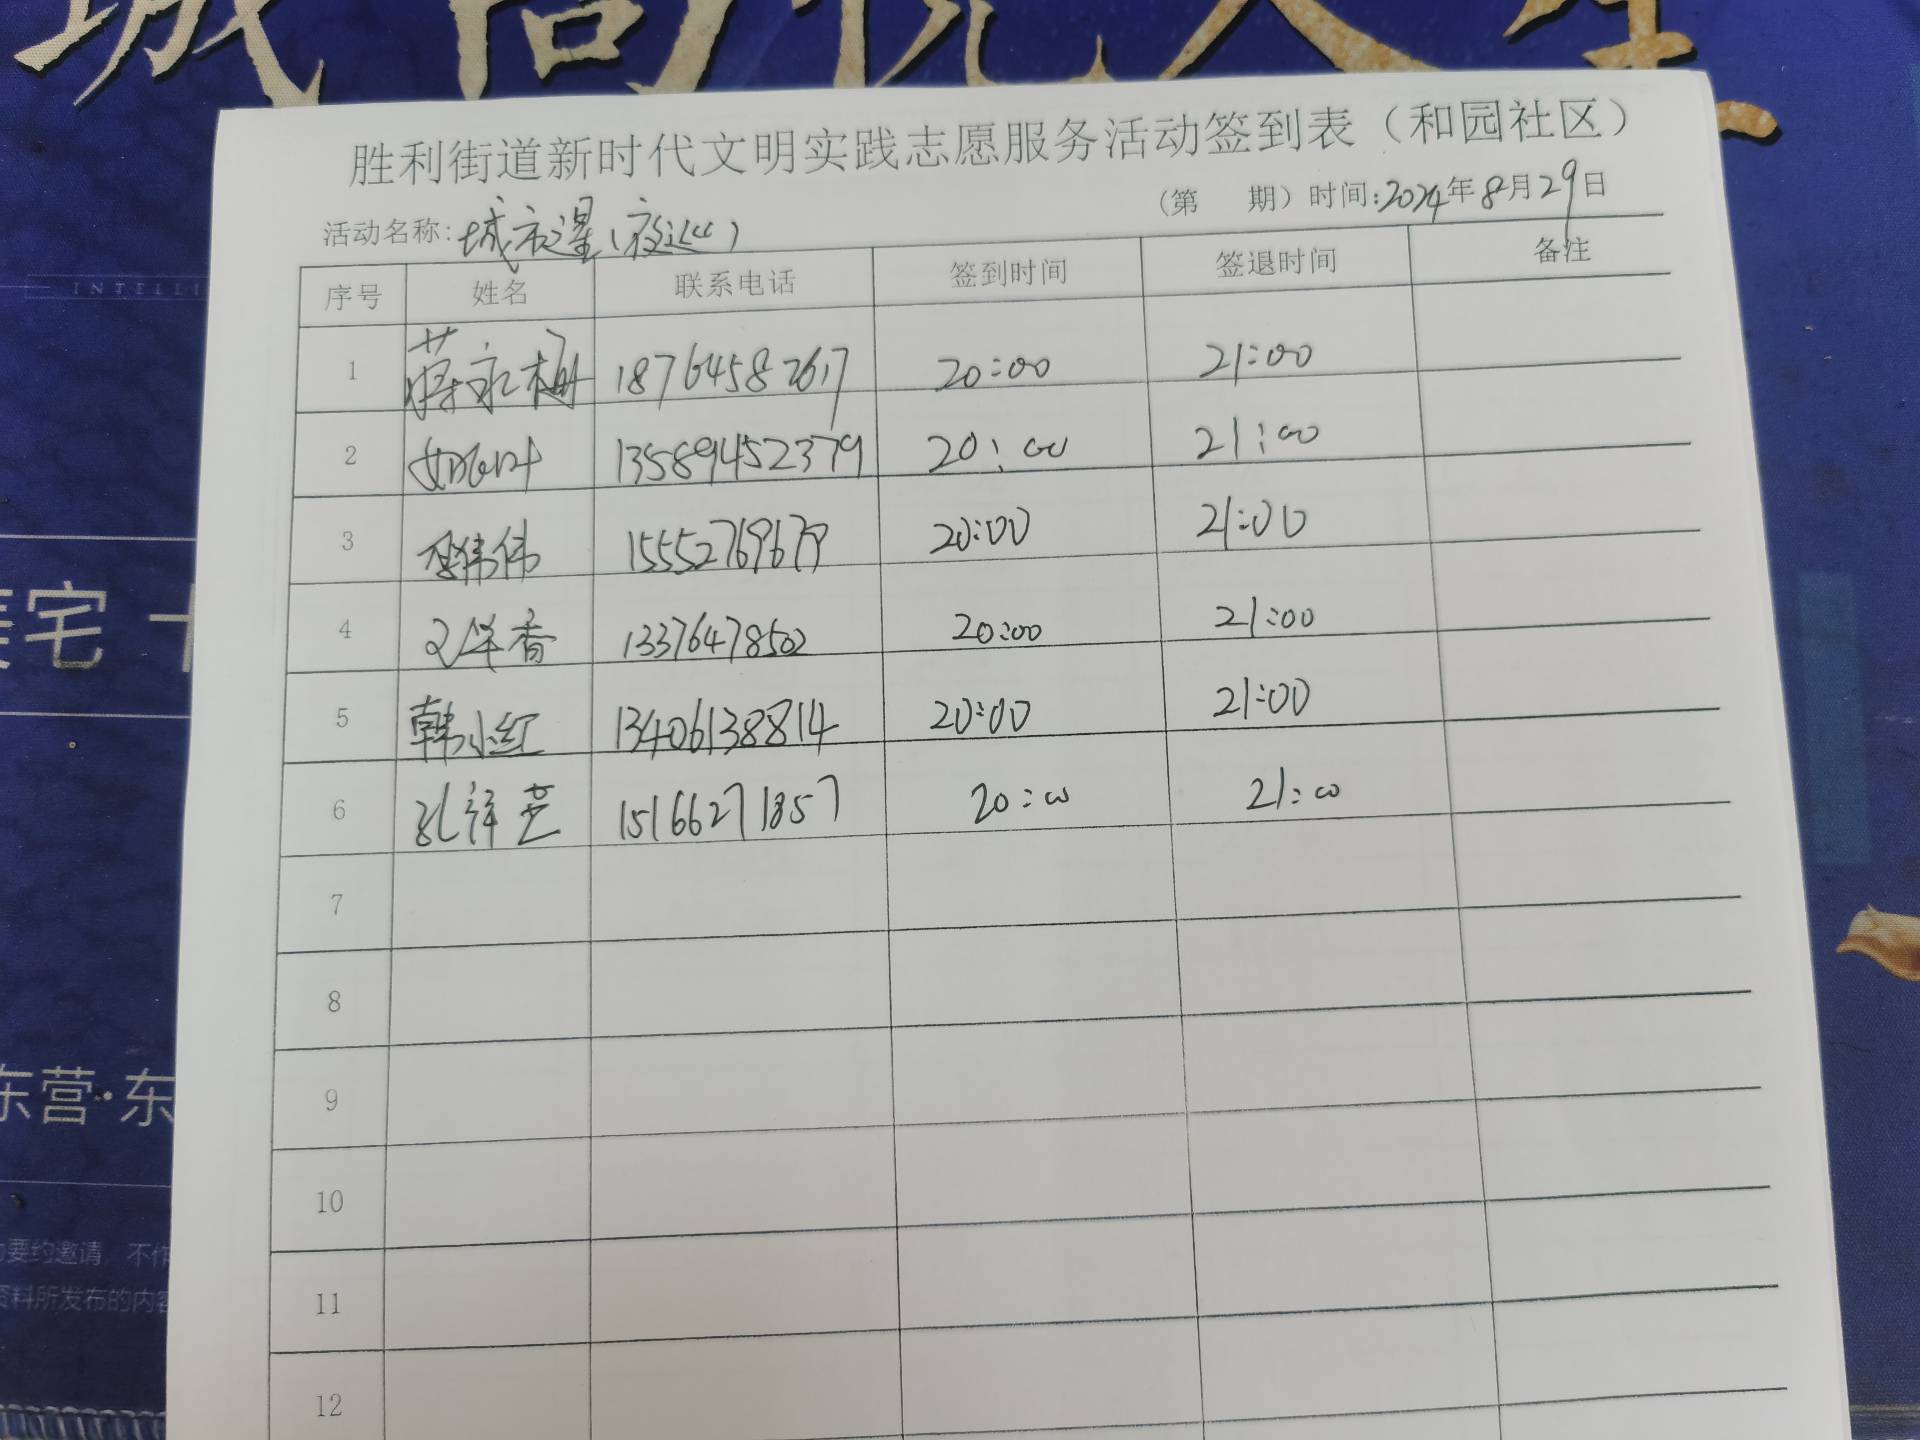 INTELLI
宅
东营·东
要约邀请，不作
资料所发布的内容
胜利街道新时代文明实践志愿服务活动签到表（和园社区）
（第 期）时间:2024年8月29日
活动名称:城市之星（夜巡）
序号 姓名 联系电话 签到时间 签退时间 备注
1 蒋永梅 18764582617 20:00 21:00
2 13589452379 20:00 21:00
3 李伟伟 15552769679 20:00 21:00
4 香 13376478502 20:00 21:00
5 韩小红 13406138814 20:00 21:00
6 孔祥芝 15166271857 20:00 21:00
7
8
9
10
11
12